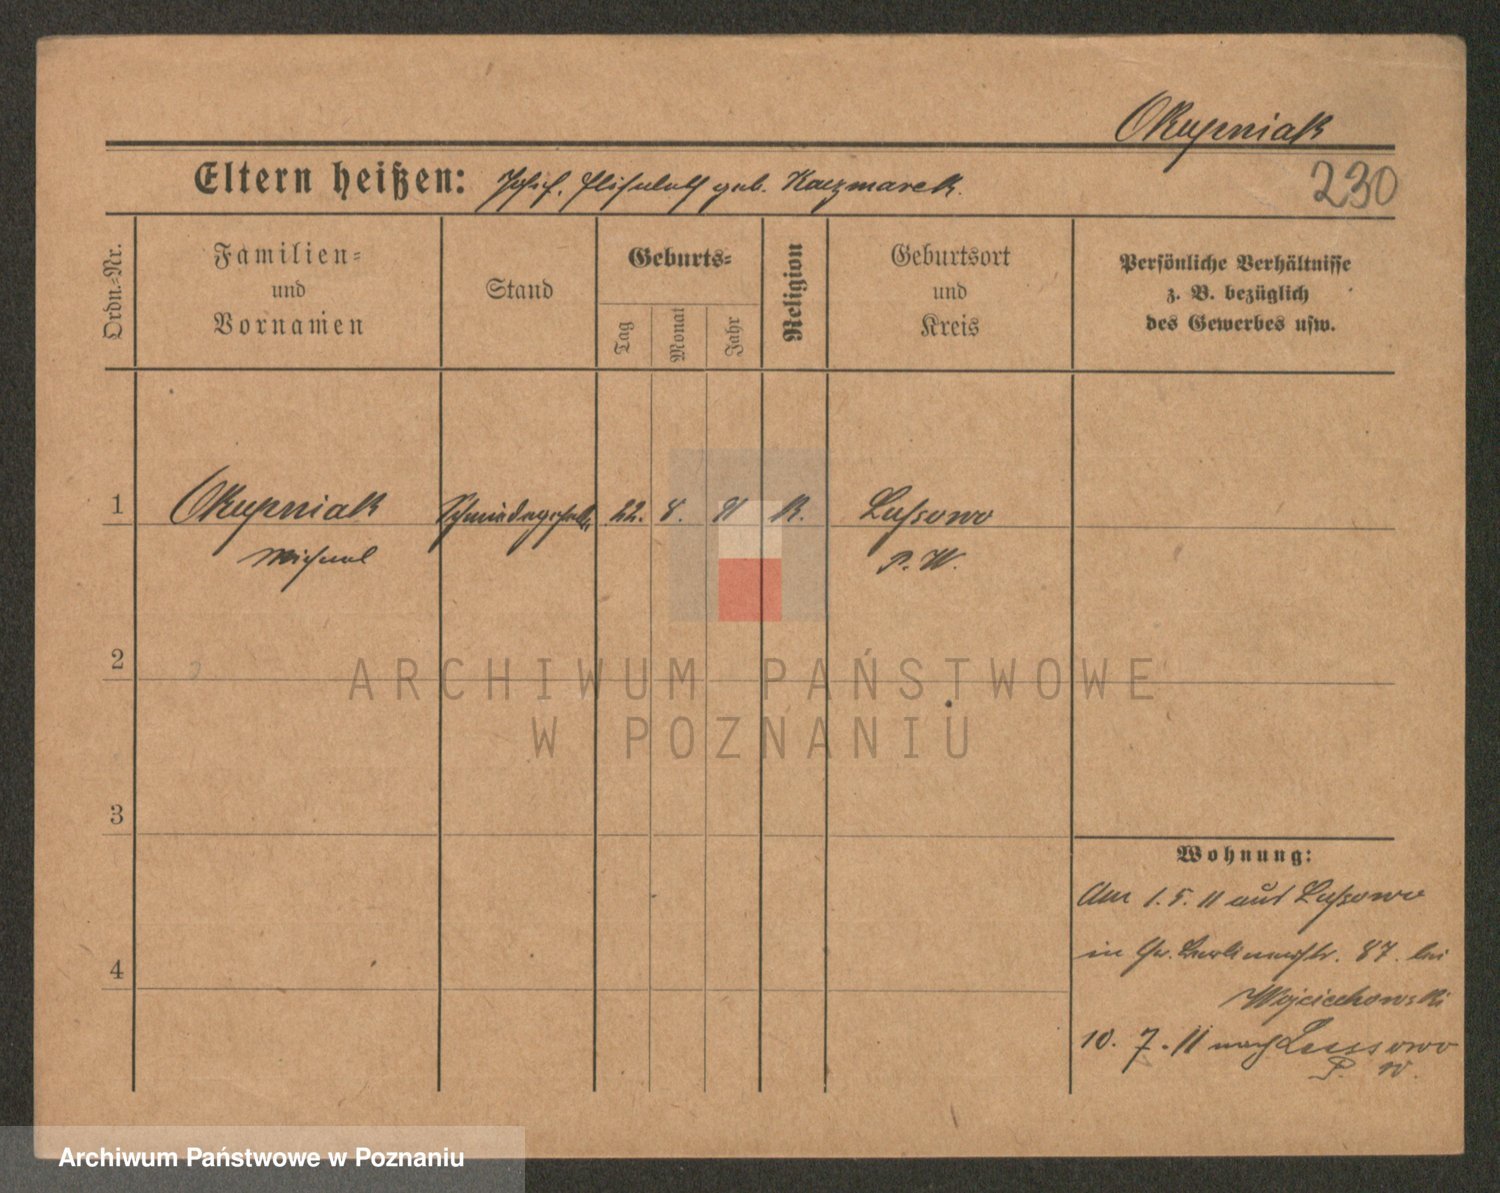 Okupniak
230
Eltern heißen: Josef, Elisabeth geb. Kaczmarek.
Ordn.-Nr.
Familien- und Vornamen
Stand
Geburts-
Tag
Monat
Jahr
Religion
Geburtsort und Kreis
Persönliche Verhältnisse
z. B. bezüglich
des Gewerbes usw.
1
Okupniak
Schmiedegesell.
22.
8.
91
K.
Lussowo
Michael
P. W.
2
3
4
ARCHIWUM PAŃSTWOWE
W POZNANIU
Wohnung:
Am 1. 5. 11 aus Lussowo
in Gr. Berlinerstr. 87. bei
Wojciechowski
10. 7. 11 nach Lussowo
P. W.
Archiwum Państwowe w Poznaniu